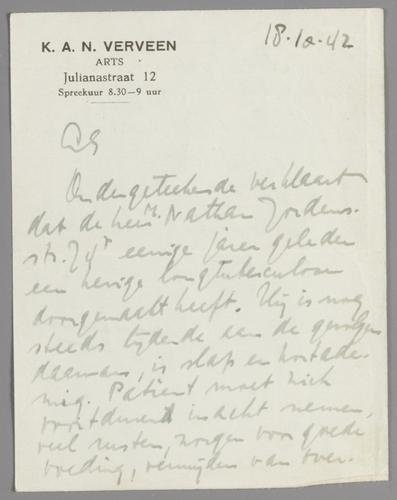 K. A. N. VERVEEN
ARTS
Julianastraat 12
Spreekuur 8.30—9 uur
18.10.42
LS
Ondergeteekende verklaart
dat de heer M. Nathan Jordens-
str. 74 eenige jaren geleden
een hevige longtuberculose
doorgemaakt heeft. Hij is nog
steeds lijdende aan de gevolgen
daarvan, is slap en kortade-
mig. Patient moet zich
voortdurend in acht nemen,
veel rusten, zorgen voor goede
voeding, vermijden van over-